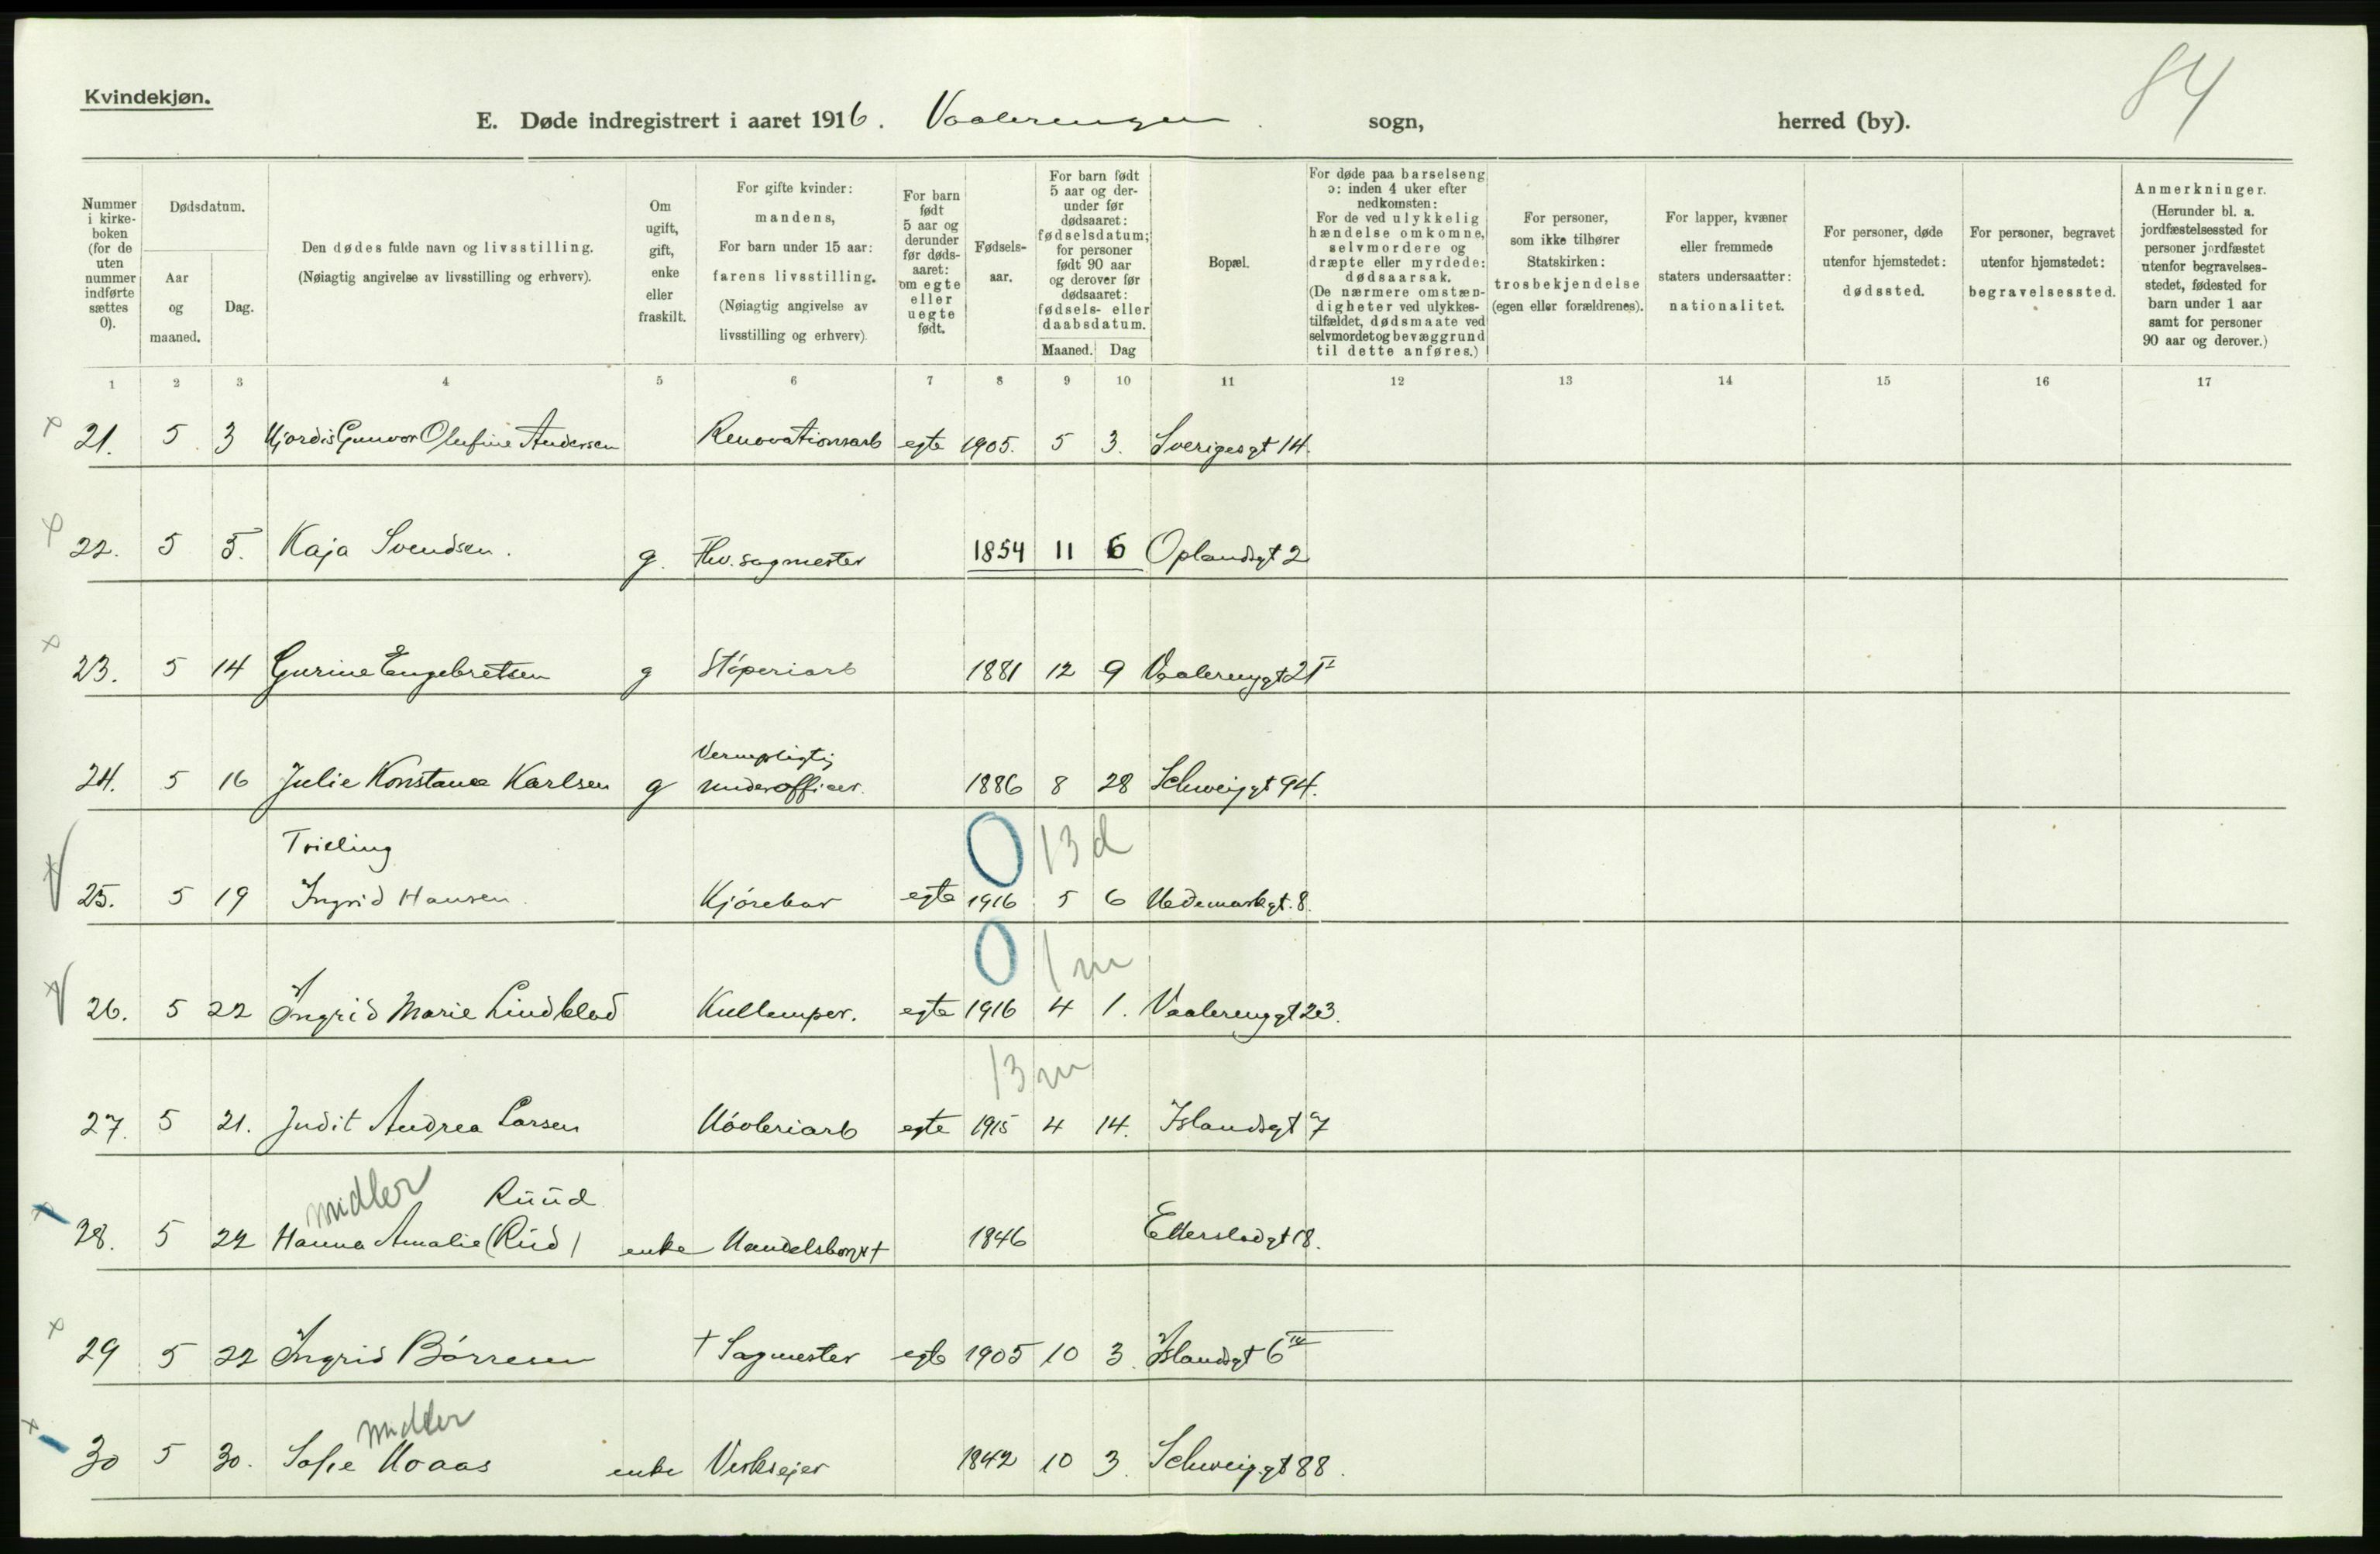 84
Kvindekjøn.
E. Døde indregistrert i aaret 1916. Vaalerengen sogn, herred (by).
Nummer i kirke-boken (for de uten nummer indførte sættes 0).
Dødsdatum.
Aar og maaned.
Dag.
Den dødes fulde navn og livsstilling.
(Nøiagtig angivelse av livsstilling og erhverv).
Om ugift, gift, enke eller fraskilt.
For gifte kvinder: mandens,
For barn under 15 aar: farens livsstilling.
(Nøiagtig angivelse av livsstilling og erhverv).
For barn født 5 aar og derunder før døds-aaret: om egte eller uegte født.
Fødsels-aar.
For barn født 5 aar og der-under før dødsaaret: fødselsdatum; for personer født 90 aar og derover før dødsaaret: fødsels- eller daabsdatum.
Maaned. Dag
Bopæl.
For døde paa barselseng ɔ: inden 4 uker efter nedkomsten:
For de ved ulykkelig hændelse omkomne, selvmordere og dræpte eller myrdede: dødsaarsak.
(De nærmere omstæn-digheter ved ulykkes-tilfældet, dødsmaate ved selvmordet og bevæggrund til dette anføres.)
For personer, som ikke tilhører Statskirken: trosbekjendelse (egen eller forældrenes).
For lapper, kvæner eller fremmede staters undersaatter: nationalitet.
For personer, døde utenfor hjemstedet: dødssted.
For personer, begravet utenfor hjemstedet: begravelsessted.
Anmerkninger.
(Herunder bl. a. jordfæstelsessted for personer jordfæstet utenfor begravelses-stedet, fødested for barn under 1 aar samt for personer 90 aar og derover.)
1 2 3 4 5 6 7 8 9 10 11 12 13 14 15 16 17
21. 5 3 Hjordis Gunvor Olufine Andersen Renovationsarb egte 1905. 5 3. Sverigesgt 14.
22. 5 5. Kaja Svendsen. g. Fhv. sagmester 1854 11 6 Oplandsgt 2
23. 5 14 Gurine Engebretsen g Stóperiarb 1881 12 9 Vaalerenggt 21 II
Vernepligtig
24. 5 16 Julie Konstance Karlsen g underofficer. 1886 8 28 Schweiggt 94.
Trilling 0 13 d
25. 5 19 Ingrid Hansen. Kjórekar egte 1916 5 6 Hedemarkgt. 8.
0 1 m
26. 5 22 Ingrid Marie Lindblad Kullemper. egte 1916 4 1. Vaalerenggt 23.
13 m
27. 5 21. Judit Andrea Larsen Hóvleriarb egte 1915 4 14. Islandsgt 7
midler Ruud
28. 5 22 Hanna Amalie (Rud) enke Handelsborger† 1846 Etterstadgt 18.
29 5 22 Ingrid Bórresen † Sagmester egte 1905 10 3. Islandsgt 6 IV
midler
30 5 30. Sofie Hoaas enke Verkseier 1842 10 3. Schweiggt 88.